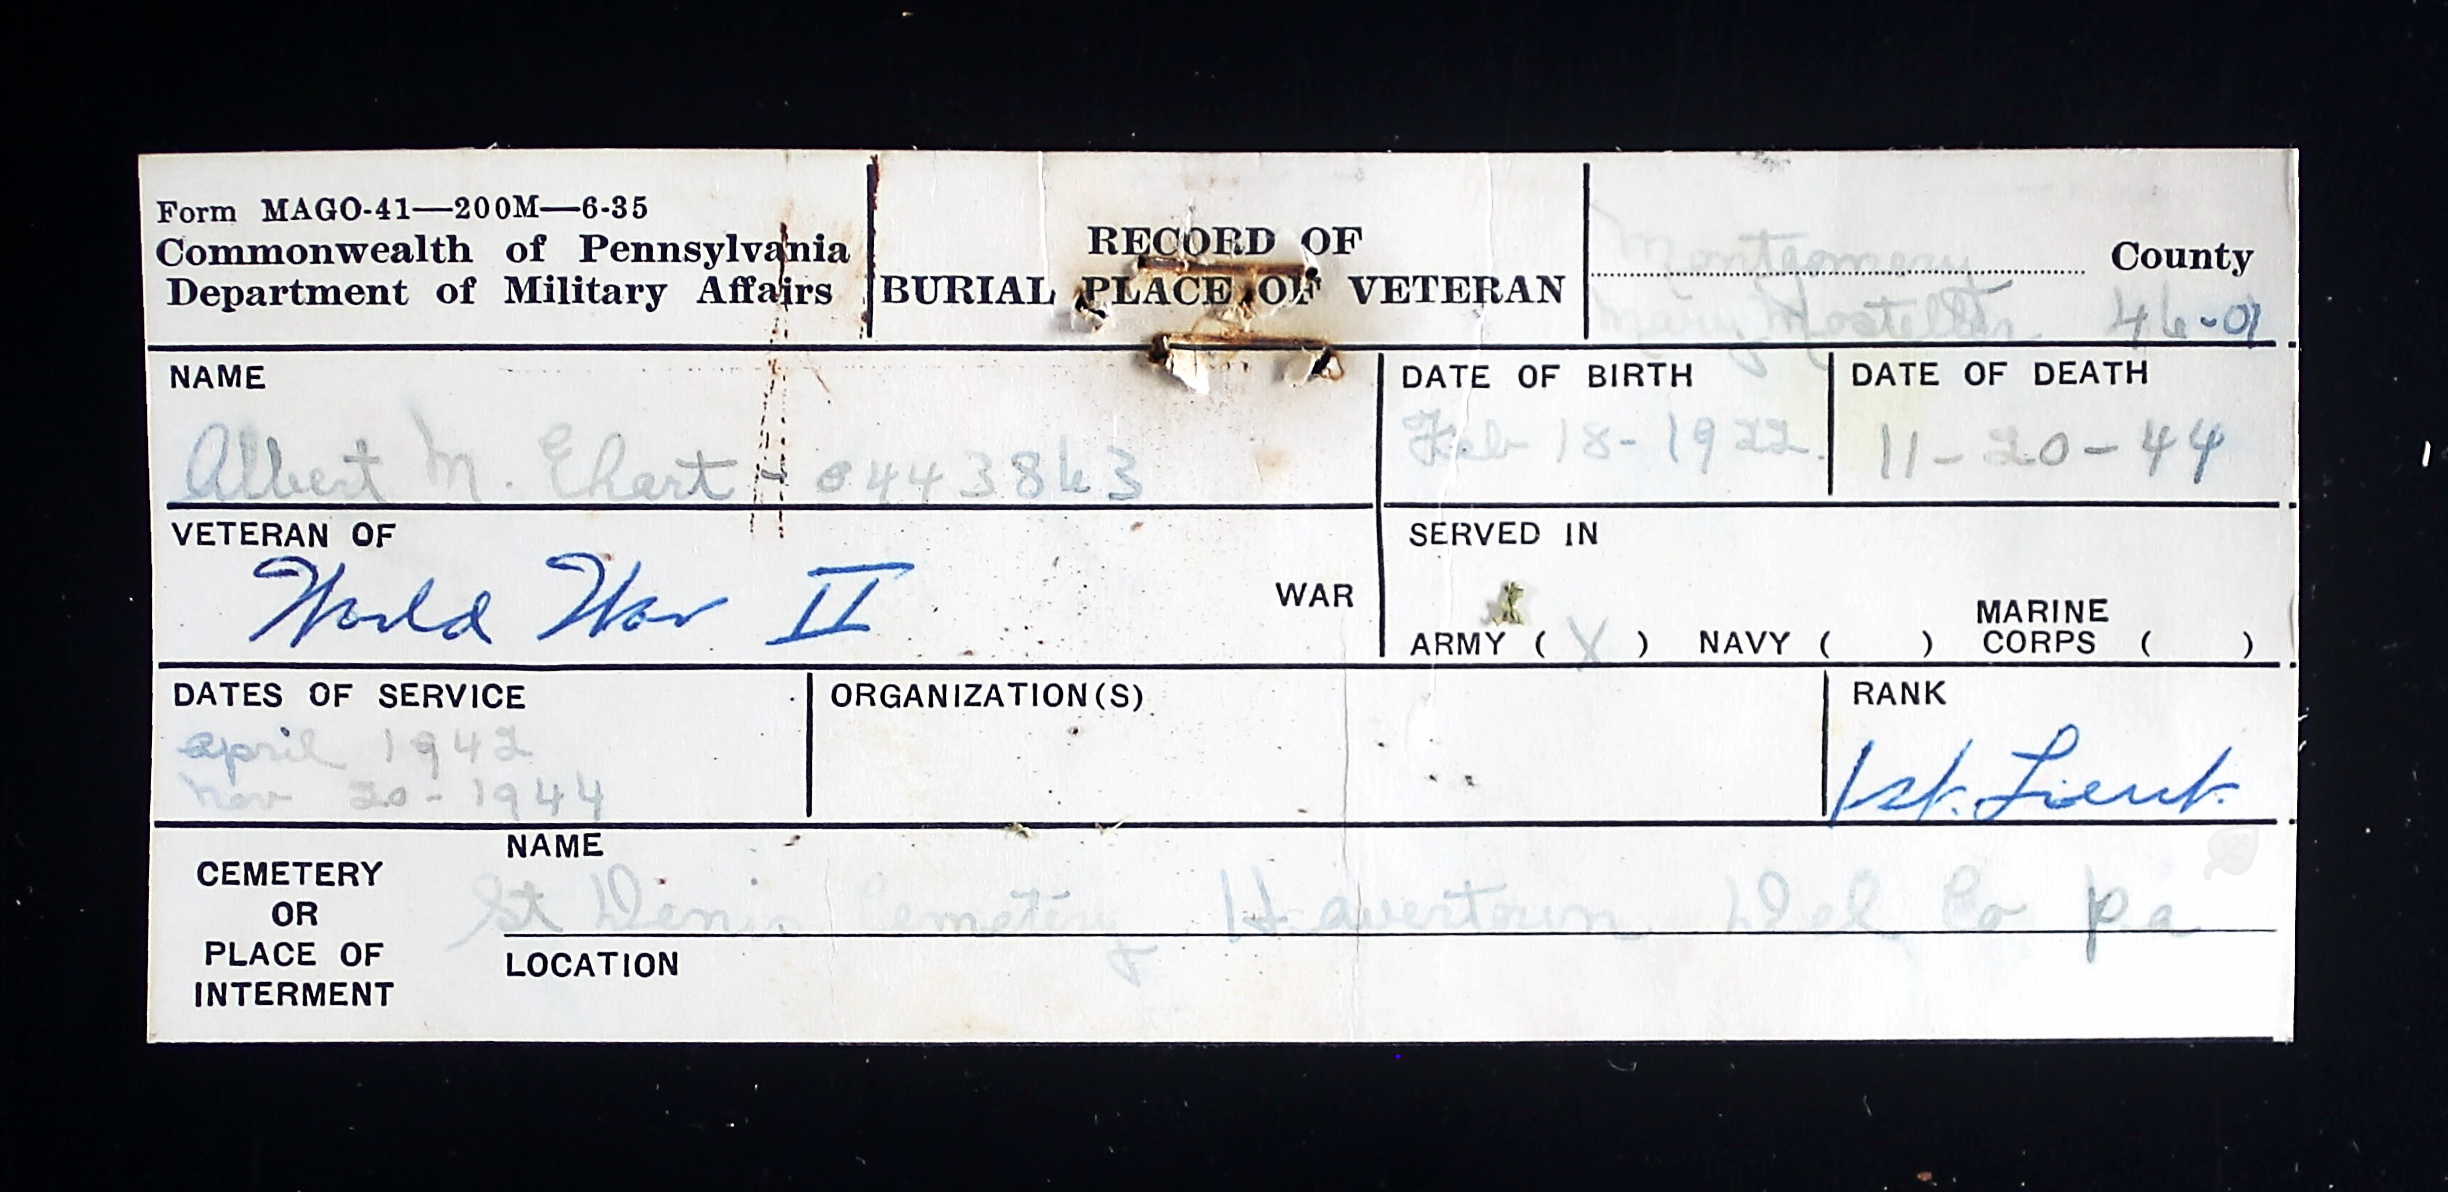 Form MAGO-41—200M—6-35
Commonwealth of Pennsylvania
Department of Military Affairs
RECORD OF
BURIAL PLACE OF VETERAN
Montgomery County
Mary Mosteller 46-01
NAME
Albert M. Ehart - 0443863
DATE OF BIRTH
Feb 18-1922
DATE OF DEATH
11-20-44
VETERAN OF
World War II WAR
SERVED IN
ARMY ( X ) NAVY ( ) MARINE CORPS ( )
DATES OF SERVICE
april 1942
Nov 20-1944
ORGANIZATION(S)
RANK
1st. Lieut.
CEMETERY
OR
PLACE OF
INTERMENT
NAME
St Denis Cemetery Havertown Del Co Pa
LOCATION